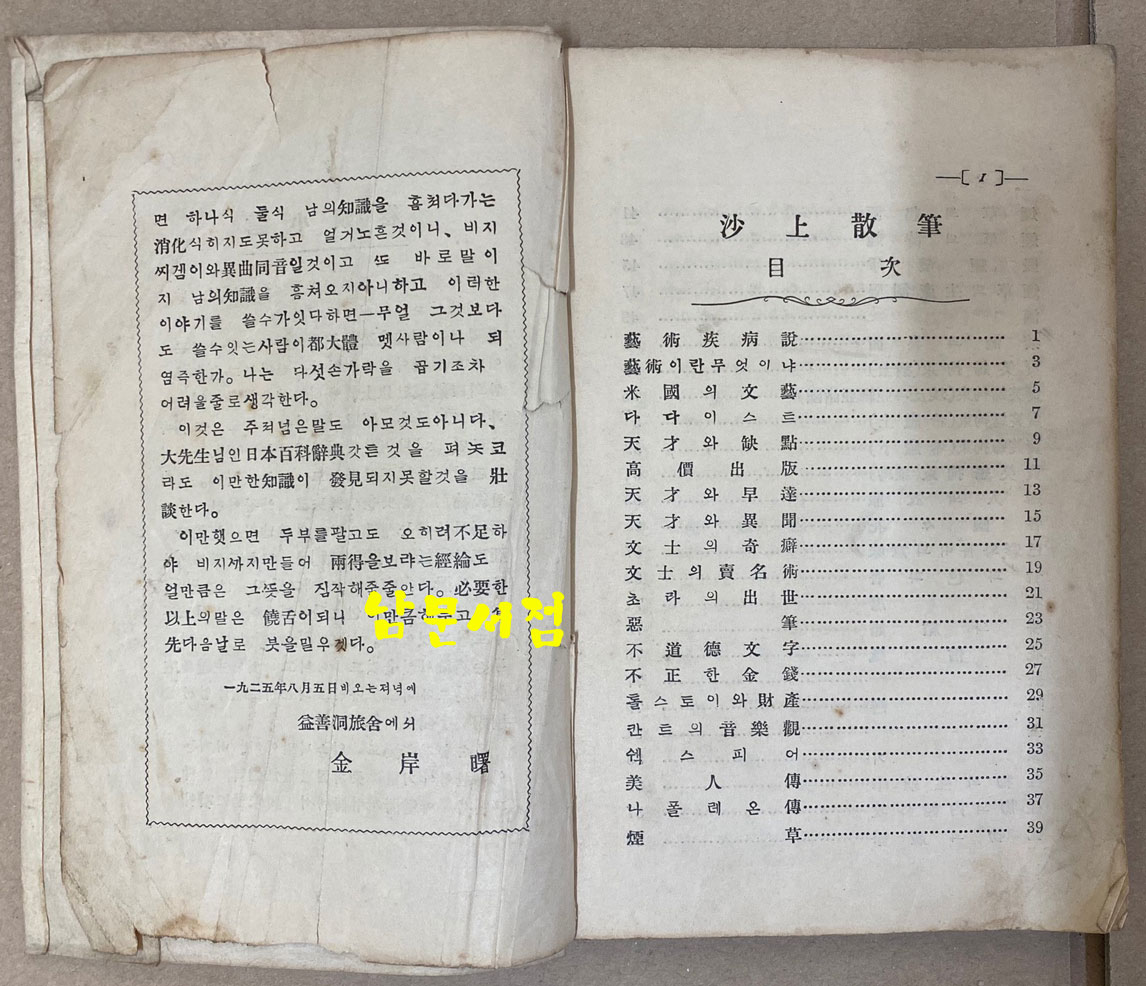 면 하나식 둘식 남의知識을 훔쳐다가는
消化식히지도못하고 얼거노흔것이니、비지
찌겜이와異曲同音일것이고 ᄯᅩ 바로말이
지 남의知識을 흠쳐오지아니하고 이러한
이야기를 쓸수가잇다하면―무얼 그것보다
도 쓸수잇는사람이都大體 멧사람이나 되
염즉한가。나는 다섯손가락을 곱기조차
어려울줄로생각한다。
이것은 주적넘은말도 아모것도아니다、
大先生님인日本百科辭典갓흔것을 펴놋코
라도 이만한知識이 發見되지못할것을 壯
談한다。
이만햇으면 두부를팔고도 오히려不足하
야 비지ᄭᅡ지만들어 兩得을보랴는經綸도
얼만큼은 그ᄯᅳᆺ을 짐작해줄줄안다。必要한
以上의말은 饒舌이되니 이만큼해두고
先다음날로 붓을밀우겟다。
一九二五年八月五日비오는저녁에
益善洞旅舍에서
金岸曙
남문서점
―[ 1 ]―
沙上散筆
目次
藝術疾病說 1
藝術이란무엇이냐 3
米國의文藝 5
다다이스트 7
天才와缺點 9
高價出版 11
天才와早達 13
天才와異聞 15
文士의奇癖 17
文士의賣名術 19
초라의出世 21
惡筆 23
不道德文字 25
不正한金錢 27
톨스토이와財產 29
칸트의音樂觀 31
쉑스피어 33
美人傳 35
나폴레온傳 37
煙草 39